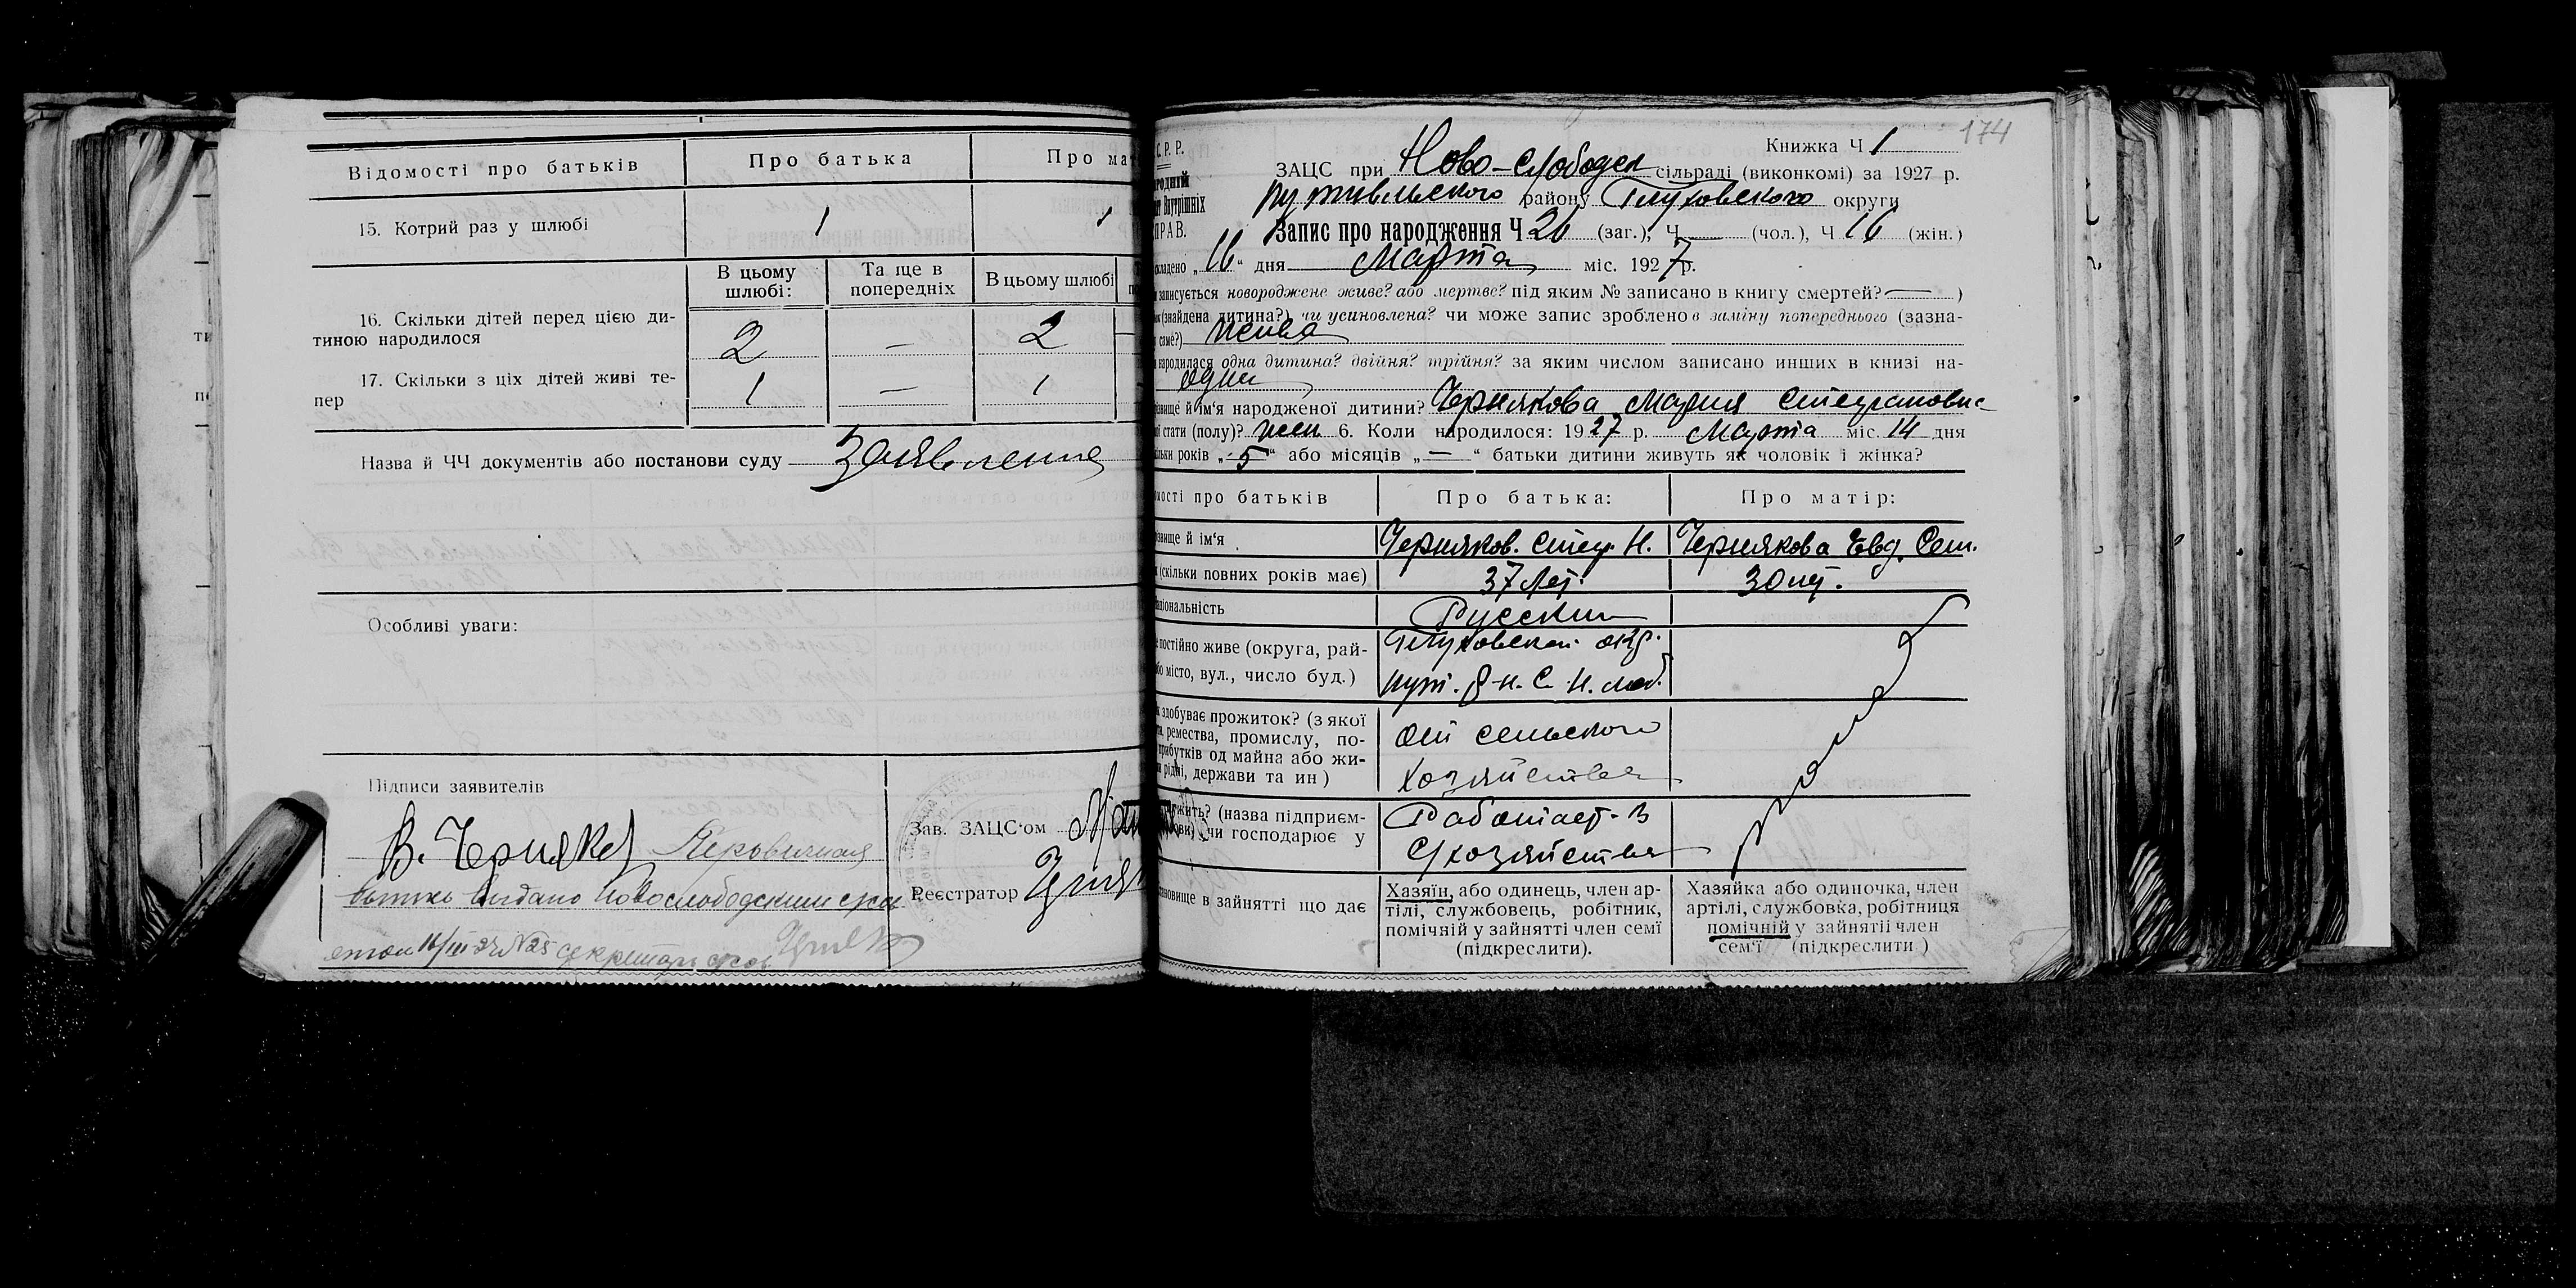 Відомості про батьків
Про батька
Про мат
15. Котрий раз у шлюбі
1
1
В цьому шлюбі:
Та ще в попередніх
В цьому шлюбі
16. Скільки дітей перед цією ди-
тиною народилося
2
—
2
17. Скільки з ціх дітей живі те-
пер
1
—
1
Назва й ЧЧ документів або постанови суду Заявление
Особливі уваги:
Підписи заявителів
В. Черняков
Первичная
выпись выдано Новослободским
16/III 27 №25 секретарь
Зав. ЗАЦС'ом
Реєстратор
174
С. Р. Р.
Книжка Ч 1
ЗАЦС при Ново-Слободск сільраді (виконкомі) за 1927 р.
Внутрішніх
Путивльского району Глуховского округи
ПРАВ.
Запис про народження Ч 26 (заг.), Ч — (чол.), Ч 16 (жін.)
складено „16" дня Марта міс. 1927 р.
записується новороджене живе? або мертве? під яким № записано в книгу смертей? — )
(знайдена дитина?) чи усиновлена? чи може запис зроблено в заміну попереднього (зазна-
саме?) жива
народилася одна дитина? двійня? трійня? за яким числом записано инших в книзі на-
одна
й ім'я народженої дитини? Чернякова Мария Степановна
стати (полу)? жен 6. Коли народилося: 1927 р. Марта міс. 14 дня
років „5" або місяців „—" батьки дитини живуть як чоловік і жінка?
про батьків
Про батька:
Про матір:
й ім'я
Черняков. Степ. Н.
Чернякова Евд. Сем.
(скільки повних років має)
37 лет.
30 лет.
Русский
постійно живе (округа, рай-
або місто, вул., число буд.)
Глуховской окр.
Пут. р-н. С. Н. Слоб.
здобуває прожиток? (з якої
ремества, промислу, по-
прибутків од майна або жи-
рідні, держави та ин )
От сельского
хозяйства
(назва підприєм-
чи господарює у
Работает в
с/хозяйстве
в зайнятті що дає
Хазяїн, або одинець, член ар-
тілі, службовець, робітник,
помічній у зайнятті член семї
(підкреслити).
Хазяйка або одиночка, член
артілі, службовка, робітниця
помічній у зайнятіі член
сем'ї (підкреслити )